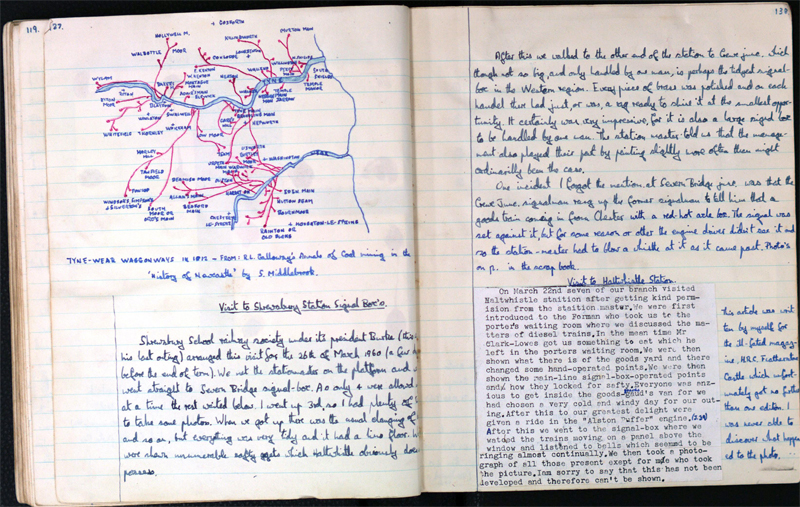 119. 127.
+ GOSFORTH
HOLLYWELL M.
WALBOTTLE MOOR
KENTON
COXLODGE
KILLINGWORTH
LONGBENTON
MURTON MAIN
WYLAM
HEATON
WALKER
WALLSEND
TYNE
SOUTH SHIELDS
TEMPLE MANOR
JARROW
ELSWICK
WHITEFIELD
THORNLEY
WHICKHAM
TEAM
+ HEPWORTH
MARLEY HILL
TANFIELD MOOR
PONTOP
BEAMISH MOOR
SOUTH MOOR OR
BEDFORD MOOR
CHESTER-LE-STREET
+ WASHINGTON
EDEN MAIN
BUTTON BEAM
+ HOUGHTON-LE-SPRING
RAINTON OR
OLD DUCKS
TYNE-WEAR WAGGONWAYS IN 1812 - FROM: R.L. Galloway's Annals of Coal mining in the
'History of Newcastle' by S. Middlebrook.
Visit to Shrewsbury Station Signal Box's.
Shrewsbury School railway society under its president Burke (this
his last outing) arranged this visit for the 26th of March 1960 (a few
before the end of term). We met the stationmaster on the platform and
went straight to Seven Bridge signal-box. As only 4 were allowed
at a time the rest waited below. I went up 3rd, so I had plenty of
to take some photos. When we got up there was the usual clanging of
and so on, but everything was very tidy and it had a lino floor. W
were shown innumerable safty gadgets which Haltwhistle obviously doesn
possess.
130
After this we walked to the other end of the station to Crewe junc. which
though not so big and only handled by one man, is perhaps the tidyest signal-
box in the Western region. Every piece of brass was polished and on each
handel there had just, or was, a rag ready to shine it at the smallest oppor-
tunity. It certainly was very impressive, for it is also a large signal box
to be handled by one man. The station master told us that the manage-
ment also played their part by painting slightly more often than might
ordinarily been the case.
One incident I forgot the mention at Seven Bridge junc. was that the
Crewe June. signalman rang up the former signalman to tell him that a
goods train coming in from Chester with a red-hot axle box. The signal was
set against it, but for some reason or other the engine driver didn't see it and
so the station-master had to blow a whistle at it as it came past. Photo's
on p.. in the scrap book.
Visit to Haltwhistle Station.
On March 22nd seven of our branch visited
Haltwhistle staition after getting kind perm-
ision from the staition mastwr. We were first
introduced to the Forman who took us to the
porter's waiting room where we discussed the ma-
tters of diesel trains. In the mean time Mr
Clark-Lowes got us something to eat which he
left in the porters waiting room. We wer. then
shown what there is of the goods yard and there
changed some hand-operated points. We were then
shown the main-line signal-box-operated points
and how they locked for safty. Everyone was anx-
ious to get inside the goods guard's van for we
had chosen a very cold and windy day for our out-
ing. After this to our greatest delight were
given a ride in the "Alston Puffer" engine.
After this we went to the signal-box where we
watced the trains moving on a panel above the
window and listened to bells which seemed to be
ringing almost continually. We then took a photo-
graph of all those present exept for me who took
the picture. Iam sorry to say that this has not been
developed and therefore can't be shown.
This article was writ
ten by myself for
the ill-fated magaz-
ine, H.R.C. Featherstone
Castle which unfort-
unately got no further
than one edition. I
was never able to
discover what happen
ed to the photo.